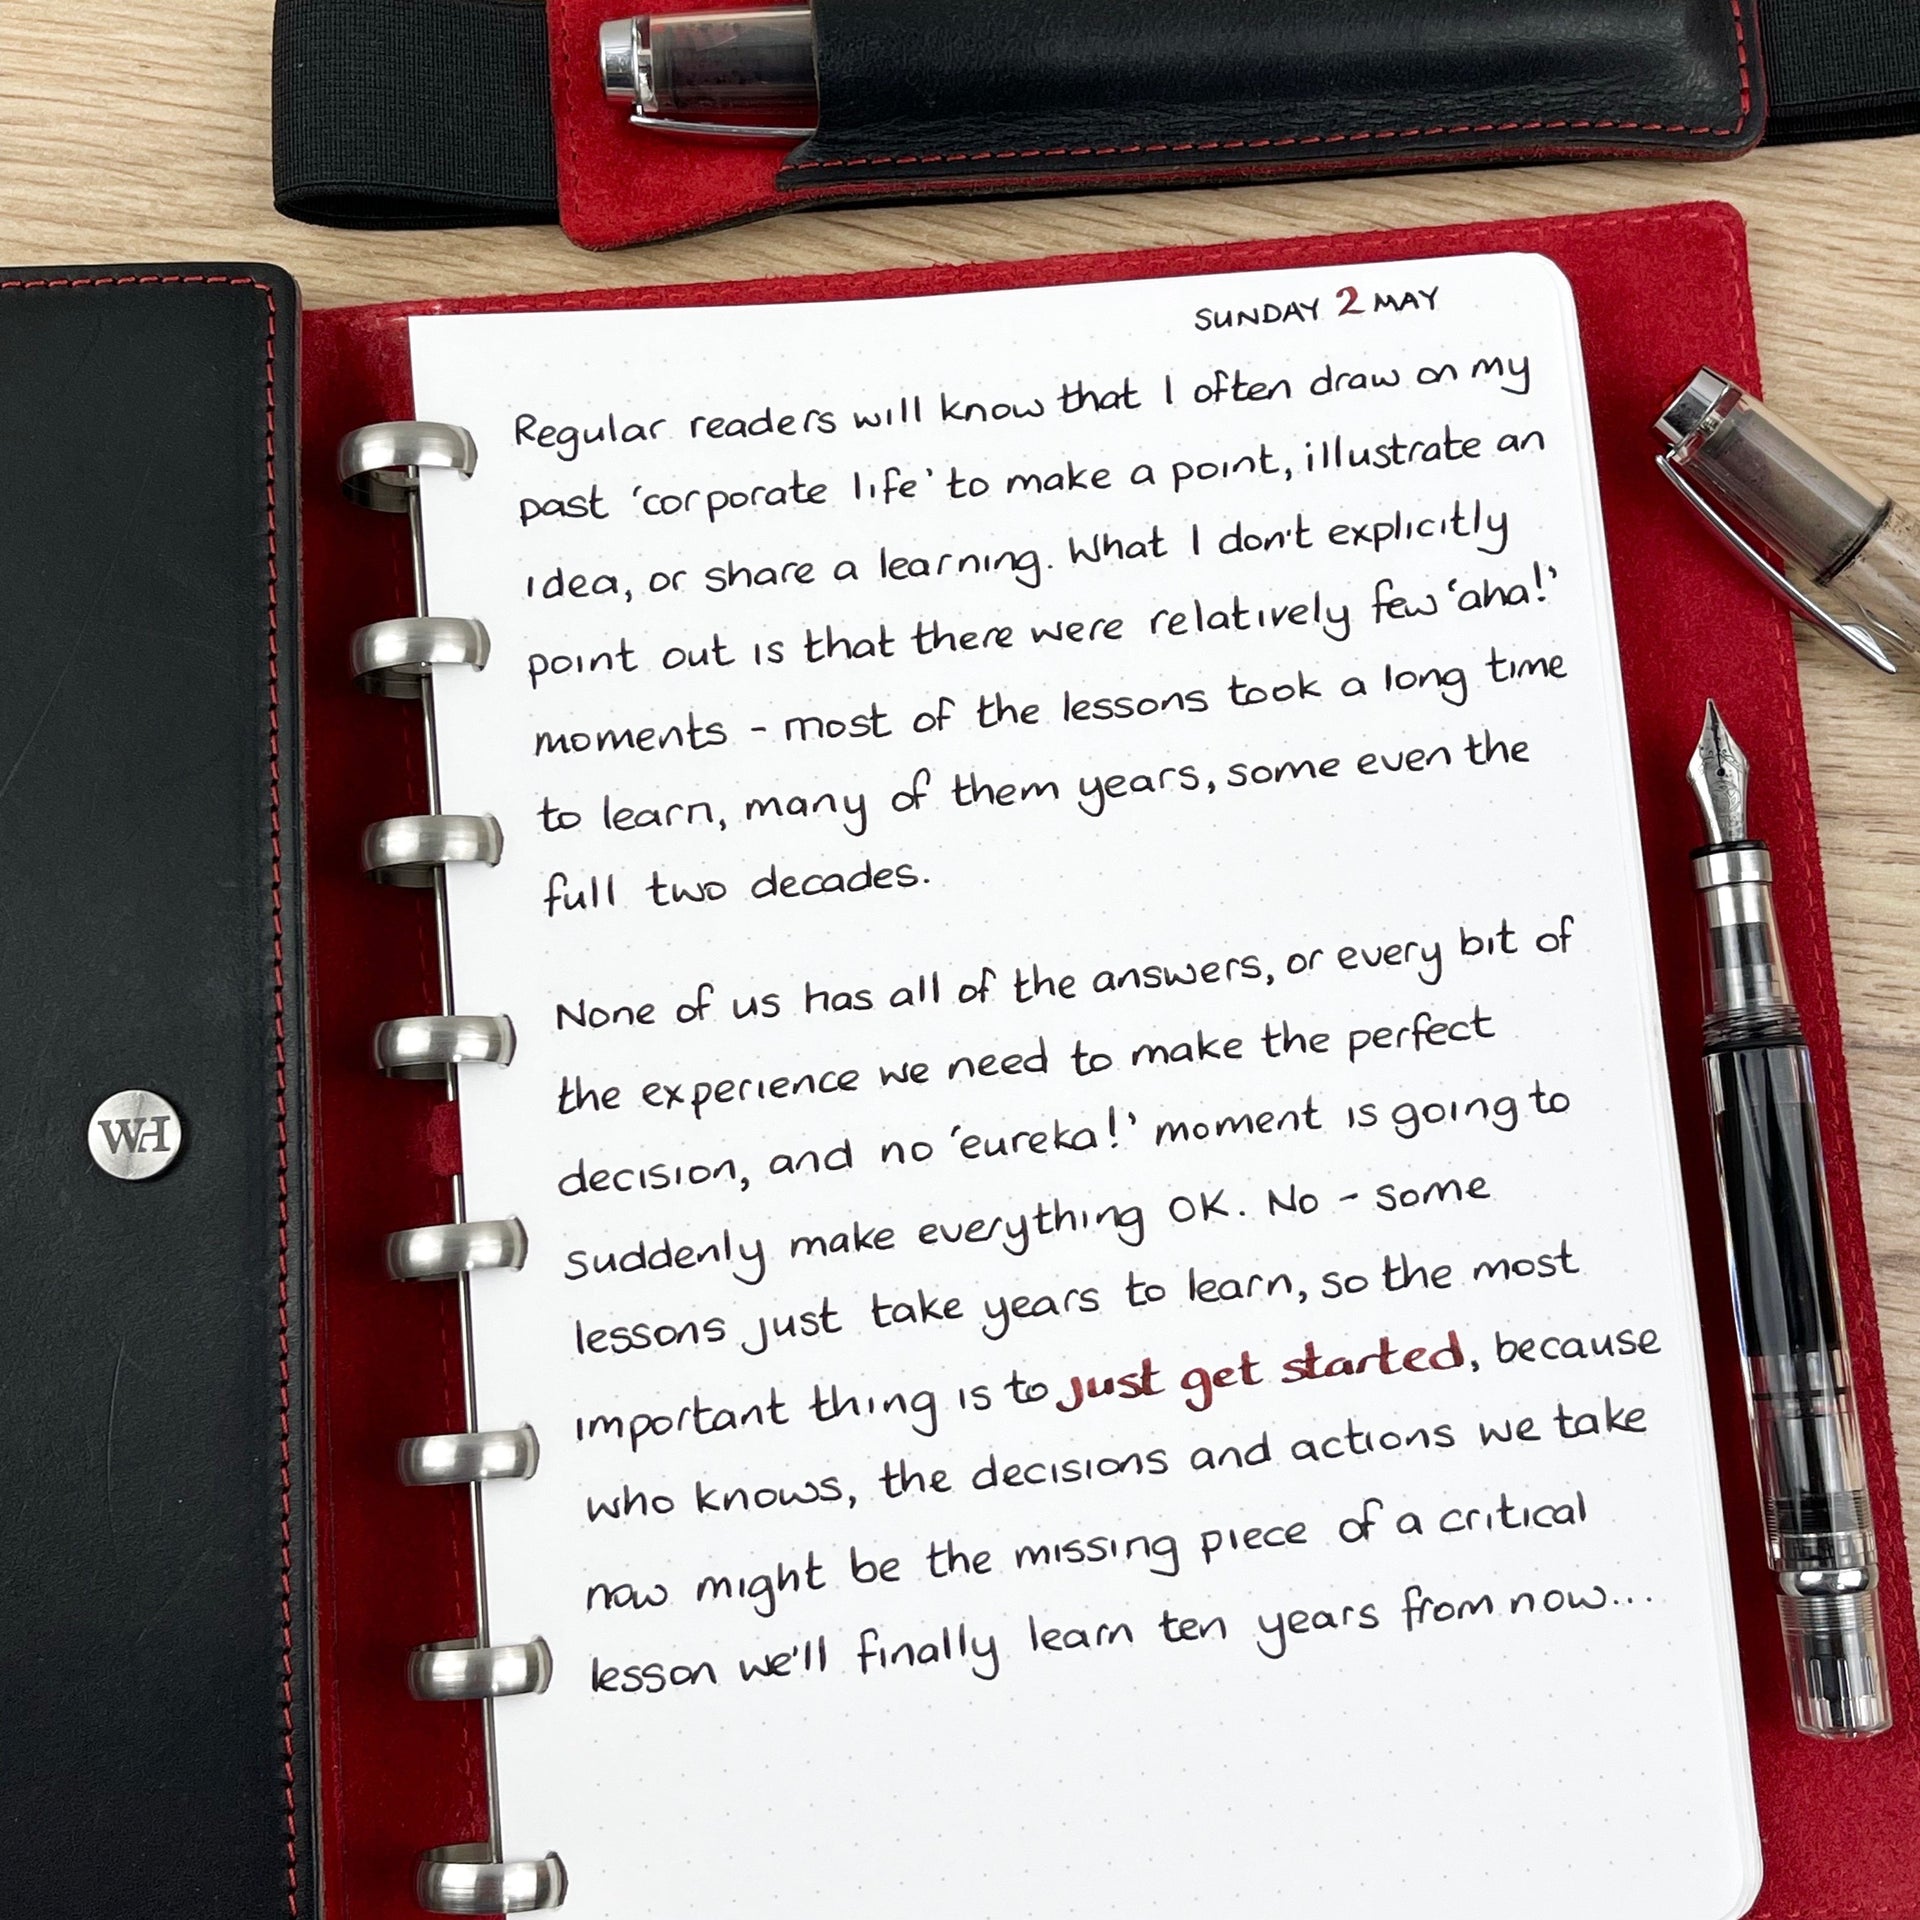 SUNDAY 2 MAY
Regular readers will know that I often draw on my
past 'corporate life' to make a point, illustrate an
idea, or share a learning. What I don't explicitly
point out is that there were relatively few 'aha!'
moments - most of the lessons took a long time
to learn, many of them years, some even the
full two decades.
None of us has all of the answers, or every bit of
the experience we need to make the perfect
decision, and no 'eureka!' moment is going to
suddenly make everything OK. No - some
lessons just take years to learn, so the most
important thing is to just get started, because
who knows, the decisions and actions we take
now might be the missing piece of a critical
lesson we'll finally learn ten years from now...
WH